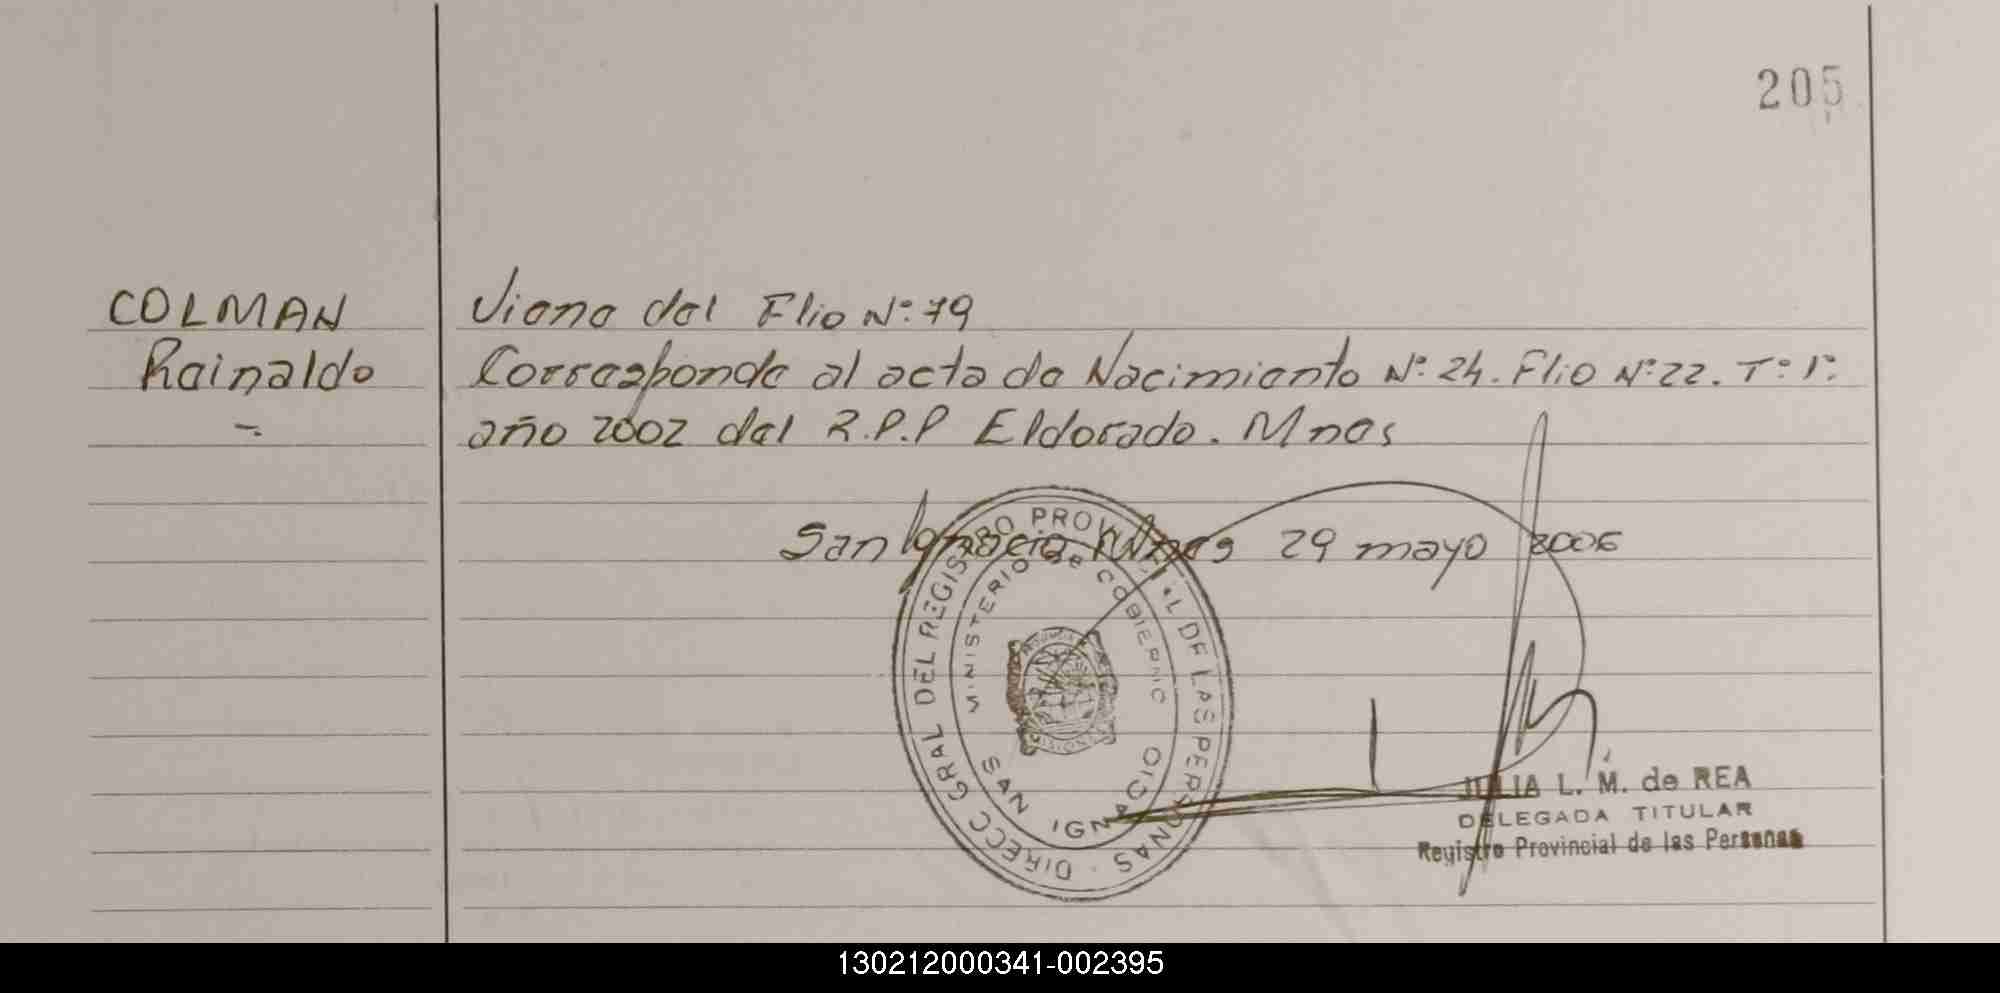 205
COLMAN
Rainaldo
=.
Viene del Flio Nº: 79
Corresponde al acta de Nacimiento Nº: 24. Flio Nº: 22. Tº: 1º:
año 2002 del R.P.P Eldorado. Mnes
San Ignacio Mnes 29 mayo 2006
DIRECC GRAL DEL REGISTRO PROVINCIAL DE LAS PERSONAS
MINISTERIO de GOBIERNO
SAN IGNACIO
JULIA L. M. de REA
DELEGADA TITULAR
Registro Provincial de las Personas
130212000341-002395